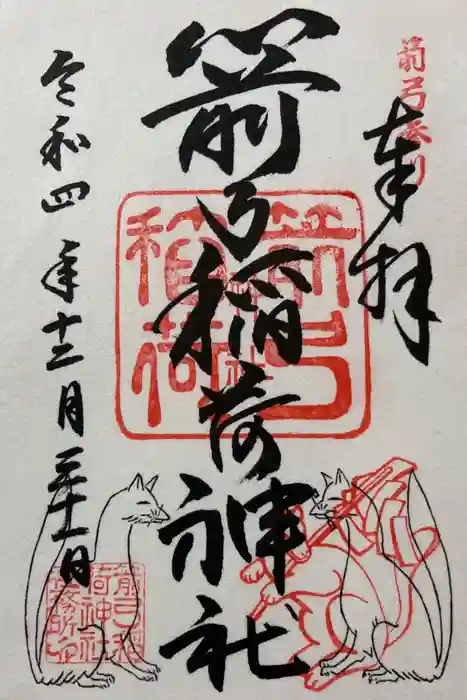 箭弓参り
奉拝
箭弓稲荷神社
箭弓
稲荷
神社
令和四年十二月二十一日
箭弓稲
荷神社
務所印